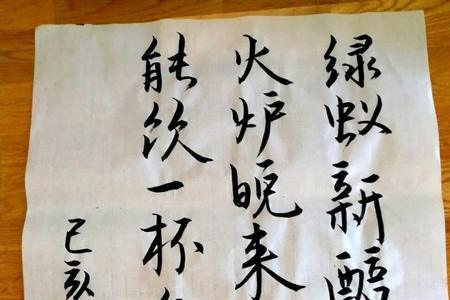 绿蚁新醅
火炉晚来
能饮一杯
己亥